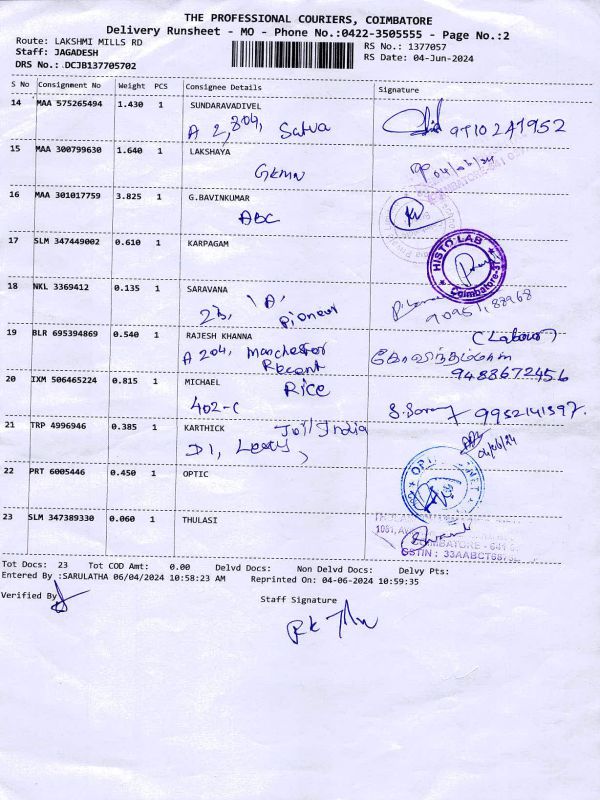 THE PROFESSIONAL COURIERS, COIMBATORE
Delivery Runsheet - MO - Phone No.:0422-3505555 - Page No.:2
Route: LAKSHMI MILLS RD
RS No.: 1377057
Staff: JAGADESH
RS Date: 04-Jun-2024
DRS No.: DCJB137705702
S No Consignment No Weight PCS Consignee Details Signature
14 MAA 575265494 1.430 1 SUNDARAVADIVEL
A 2,804, Satva 9910247952
15 MAA 300799630 1.640 1 LAKSHAYA
GKMN 04/06/24
16 MAA 301017759 3.825 1 G.BAVINKUMAR
ABC
17 SLM 347449002 0.610 1 KARPAGAM
HISTO LAB
Coimbatore
18 NKL 3369412 0.135 1 SARAVANA
2B, 'A' Pioneer
90951,88968
19 BLR 695394869 0.540 1 RAJESH KHANNA
(Labour)
A 204, Manchester
Recent
கோவிந்தம்மாள
9488672456
20 IXM 506465224 0.815 1 MICHAEL
Rice
402-C
9952141397.
21 TRP 4996946 0.385 1 KARTHICK
India
D1,
04/06/24
22 PRT 6005446 0.450 1 OPTIC
23 SLM 347389330 0.060 1 THULASI
COIMBATORE - 641
GSTIN : 33AABCT
Tot Docs: 23 Tot COD Amt: 0.00 Delvd Docs: Non Delvd Docs: Delvy Pts:
Entered By :SARULATHA 06/04/2024 10:58:23 AM Reprinted On: 04-06-2024 10:59:35
Verified By
Staff Signature